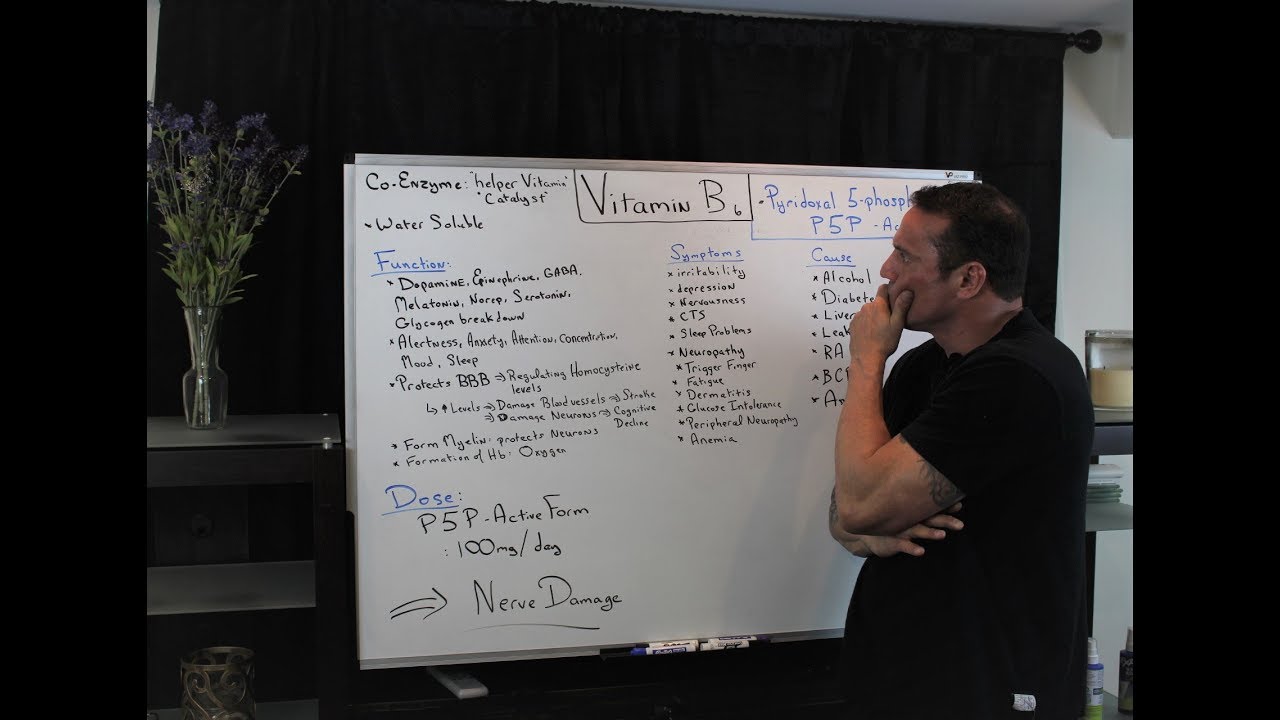 Co-Enzyme: "helper Vitamin"
"Catalyst"
- Water Soluble
Vitamin B6
- Pyridoxal 5-phosph
P5P - Ac
Function:
* Dopamine, Epinephrine, GABA,
Melatonin, Norep, Serotonin,
Glycogen breakdown
* Alertness, Anxiety, Attention, Concentration,
Mood, Sleep
* Protects BBB → Regulating Homocysteine
levels
↳ ↑ Levels → Damage Blood vessels → Stroke
→ Damage Neurons → Cognitive
Decline
* Form Myelin: protects Neurons
* Formation of Hb: Oxygen
Dose:
P5P - Active Form
: 100mg/day
⇒ Nerve Damage
Symptoms
* irritability
* depression
* Nervousness
* CTS
* Sleep Problems
* Neuropathy
* Trigger Finger
* Fatigue
* Dermatitis
* Glucose Intolerance
* Peripheral Neuropathy
* Anemia
Cause
* Alcohol
* Diabete
* Liver
* Leak
* RA
* BCP